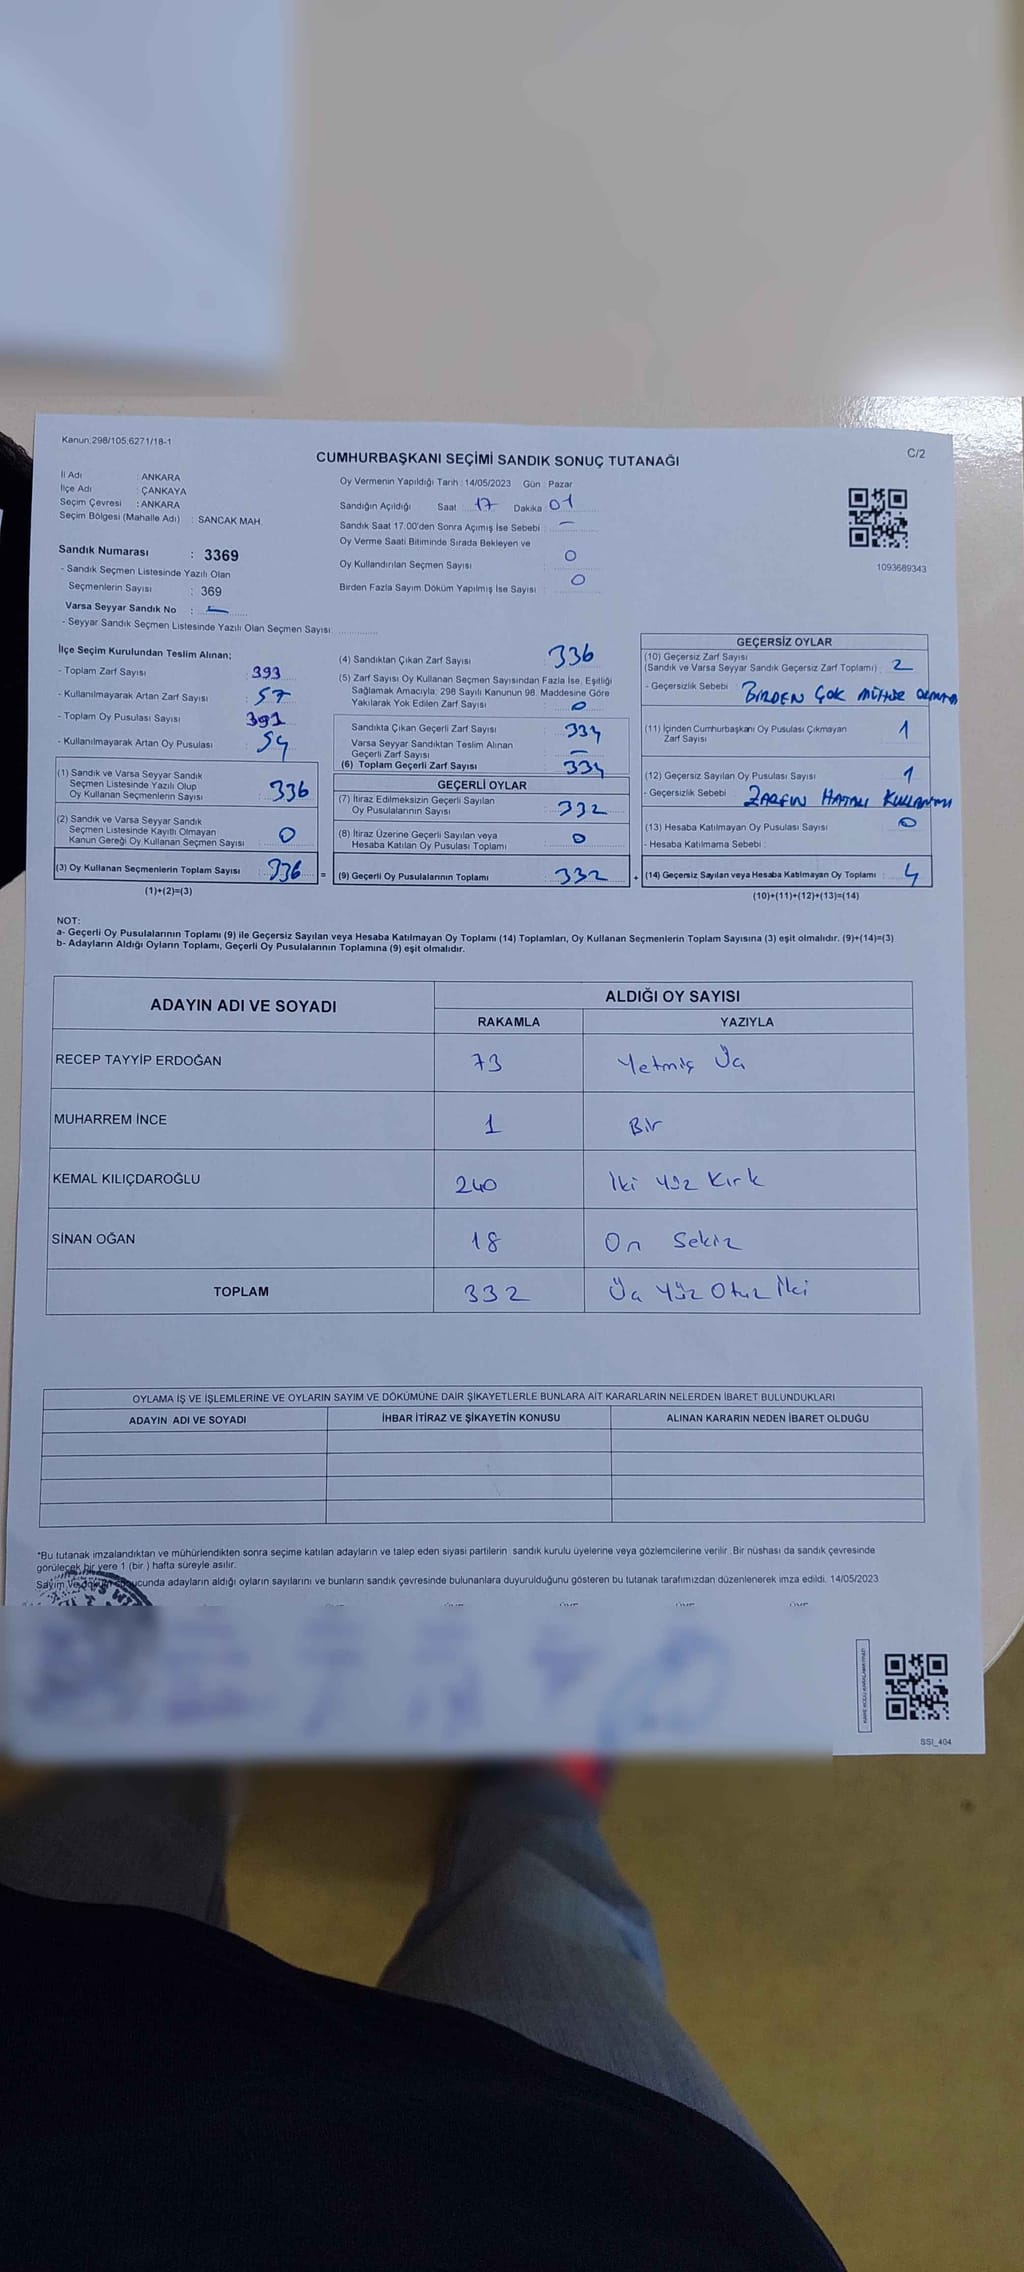 Kanun:298/105,6271/18-1
C/2
CUMHURBAŞKANI SEÇİMİ SANDIK SONUÇ TUTANAĞI
İl Adı : ANKARA
İlçe Adı : ÇANKAYA
Seçim Çevresi : ANKARA
Seçim Bölgesi (Mahalle Adı) : SANCAK MAH.
Sandık Numarası : 3369
- Sandık Seçmen Listesinde Yazılı Olan
Seçmenlerin Sayısı : 369
Varsa Seyyar Sandık No : -
- Seyyar Sandık Seçmen Listesinde Yazılı Olan Seçmen Sayısı:
Oy Vermenin Yapıldığı Tarih : 14/05/2023 Gün : Pazar
Sandığın Açıldığı Saat 17 Dakika 01
Sandık Saat 17:00'den Sonra Açımış İse Sebebi : -
Oy Verme Saati Bitiminde Sırada Bekleyen ve
Oy Kullandırılan Seçmen Sayısı : 0
Birden Fazla Sayım Döküm Yapılmış İse Sayısı : 0
1093689343
İlçe Seçim Kurulundan Teslim Alınan;
- Toplam Zarf Sayısı : 393
- Kullanılmayarak Artan Zarf Sayısı : 57
- Toplam Oy Pusulası Sayısı : 391
- Kullanılmayarak Artan Oy Pusulası : 54
(1) Sandık ve Varsa Seyyar Sandık
Seçmen Listesinde Yazılı Olup
Oy Kullanan Seçmenlerin Sayısı : 336
(2) Sandık ve Varsa Seyyar Sandık
Seçmen Listesinde Kayıtlı Olmayan
Kanun Gereği Oy Kullanan Seçmen Sayısı : 0
(3) Oy Kullanan Seçmenlerin Toplam Sayısı : 336 =
(1)+(2)=(3)
(4) Sandıktan Çıkan Zarf Sayısı : 336
(5) Zarf Sayısı Oy Kullanan Seçmen Sayısından Fazla İse, Eşitliği
Sağlamak Amacıyla; 298 Sayılı Kanunun 98. Maddesine Göre
Yakılarak Yok Edilen Zarf Sayısı : 0
Sandıkta Çıkan Geçerli Zarf Sayısı : 334
Varsa Seyyar Sandıktan Teslim Alınan
Geçerli Zarf Sayısı : -
(6) Toplam Geçerli Zarf Sayısı : 334
GEÇERLİ OYLAR
(7) İtiraz Edilmeksizin Geçerli Sayılan
Oy Pusulalarının Sayısı : 332
(8) İtiraz Üzerine Geçerli Sayılan veya
Hesaba Katılan Oy Pusulası Toplamı : 0
(9) Geçerli Oy Pusulalarının Toplamı : 332 +
GEÇERSİZ OYLAR
(10) Geçersiz Zarf Sayısı
(Sandık ve Varsa Seyyar Sandık Geçersiz Zarf Toplamı) : 2
- Geçersizlik Sebebi : BİRDEN ÇOK MÜHÜR OLMASI
(11) İçinden Cumhurbaşkanı Oy Pusulası Çıkmayan
Zarf Sayısı : 1
(12) Geçersiz Sayılan Oy Pusulası Sayısı : 1
- Geçersizlik Sebebi : ZARFIN HATALI KULLANIMI
(13) Hesaba Katılmayan Oy Pusulası Sayısı : 0
- Hesaba Katılmama Sebebi :
(14) Geçersiz Sayılan veya Hesaba Katılmayan Oy Toplamı : 4
(10)+(11)+(12)+(13)=(14)
NOT:
a- Geçerli Oy Pusulalarının Toplamı (9) ile Geçersiz Sayılan veya Hesaba Katılmayan Oy Toplamı (14) Toplamları, Oy Kullanan Seçmenlerin Toplam Sayısına (3) eşit olmalıdır. (9)+(14)=(3)
b- Adayların Aldığı Oyların Toplamı, Geçerli Oy Pusulalarının Toplamına (9) eşit olmalıdır.
ADAYIN ADI VE SOYADI
ALDIĞI OY SAYISI
RAKAMLA YAZIYLA
RECEP TAYYİP ERDOĞAN 73 Yetmiş Üç
MUHARREM İNCE 1 Bir
KEMAL KILIÇDAROĞLU 240 İki yüz Kırk
SİNAN OĞAN 18 On Sekiz
TOPLAM 332 Üç Yüz Otuz İki
OYLAMA İŞ VE İŞLEMLERİNE VE OYLARIN SAYIM VE DÖKÜMÜNE DAİR ŞİKAYETLERLE BUNLARA AİT KARARLARIN NELERDEN İBARET BULUNDUKLARI
ADAYIN ADI VE SOYADI İHBAR İTİRAZ VE ŞİKAYETİN KONUSU ALINAN KARARIN NEDEN İBARET OLDUĞU
*Bu tutanak imzalandıktan ve mühürlendikten sonra seçime katılan adayların ve talep eden siyasi partilerin sandık kurulu üyelerine veya gözlemcilerine verilir. Bir nüshası da sandık çevresinde
görülecek bir yere 1 (bir ) hafta süreyle asılır.
Sayım ve adayların aldığı oyların sayılarını ve bunların sandık çevresinde bulunanlara duyurulduğunu gösteren bu tutanak tarafımızdan düzenlenerek imza edildi. 14/05/2023
SSI_404